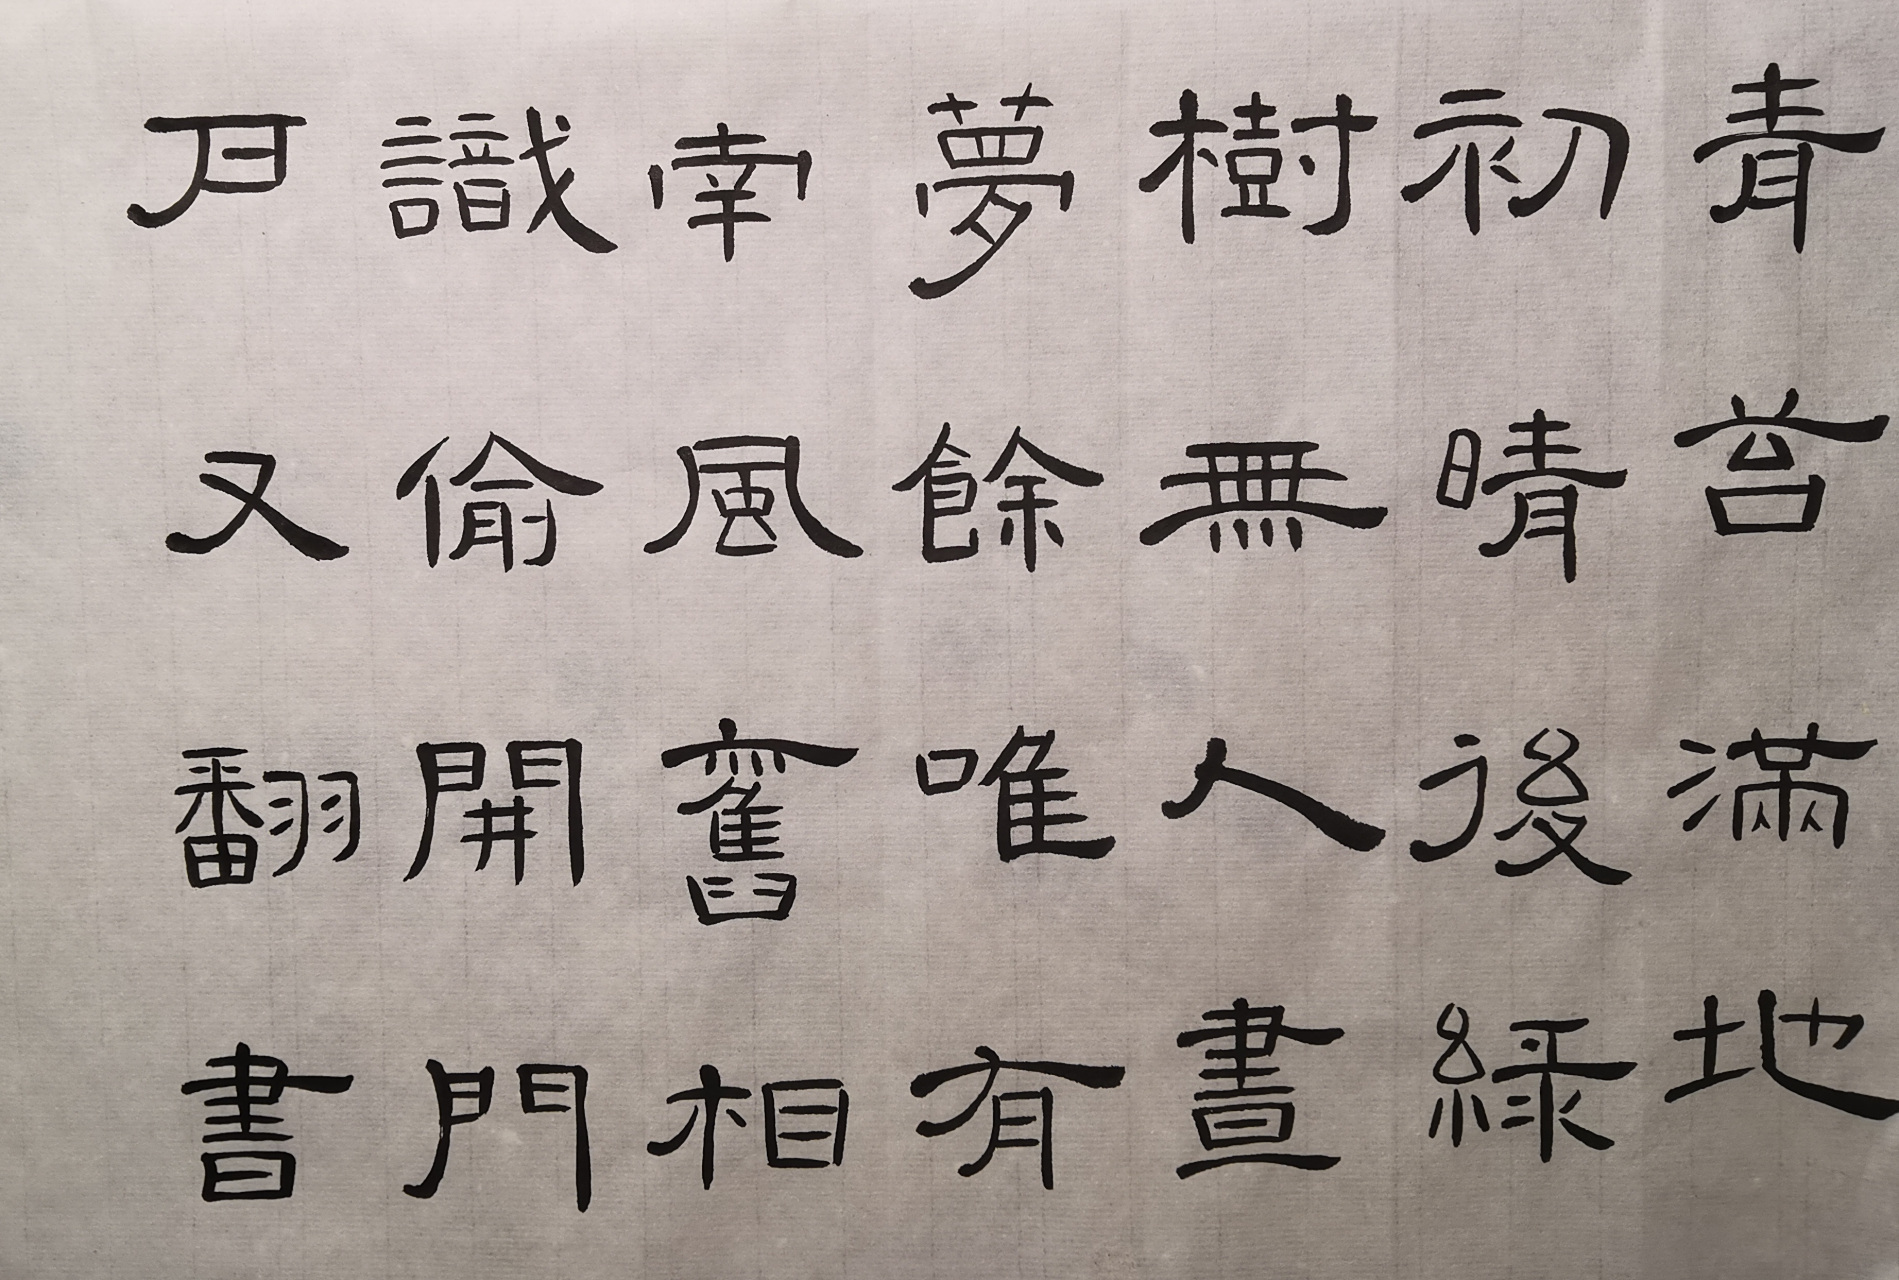 青苔滿地
初晴後綠
樹無人晝
夢餘唯有
南風舊相
識偷開門
戶又翻書